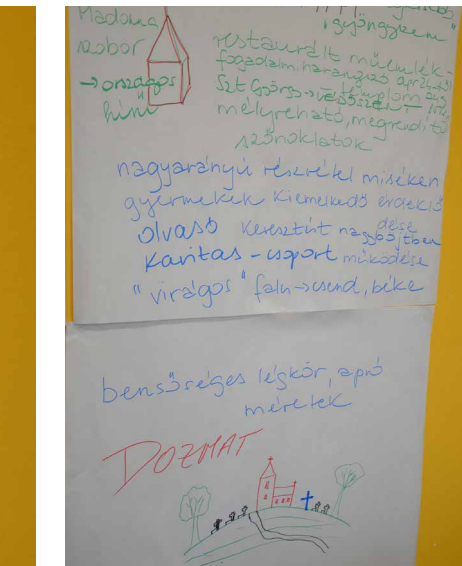 Madonna
szobor
→ országos
hírű
"gyöngyszem"
restaurált műemlék-
fogadalmi harangszó
Szt György → templom
mélyreható, megrendítő
szónoklatok
nagyarányú részvétel miséken
gyermekek kiemelkedő érdeklő
dése
olvasó keresztút nagyböjtben
Karitas-csoport működése
"virágos" falu → csend, béke
bensőséges légkör, apró
méretek
DOZMAT